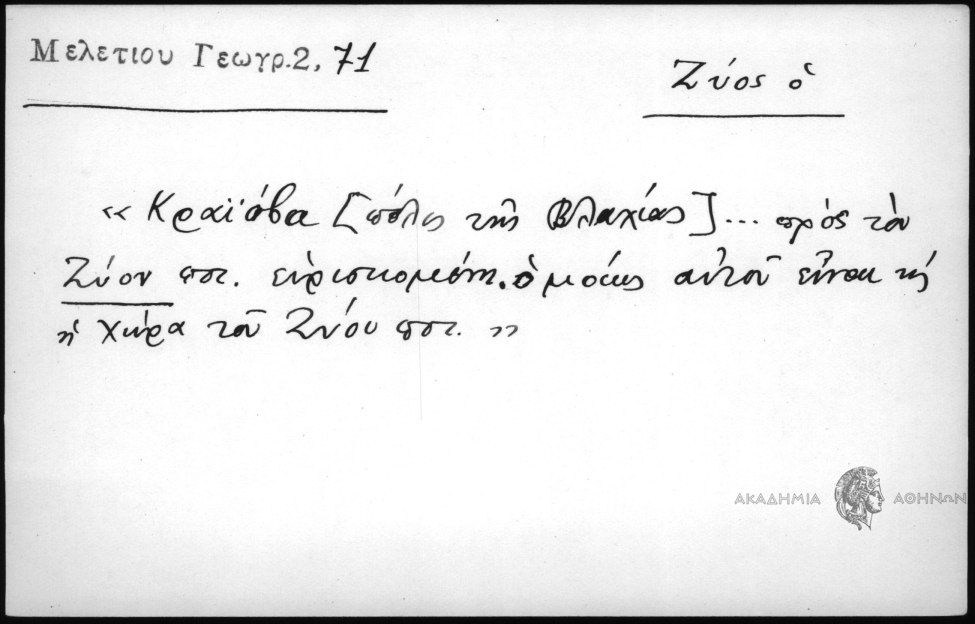 Μελετιου Γεωγρ.2, 71
Ζύος ὁ
« Κραϊόβα [πόλις τῆς Βλαχίας] ... πρὸς τὸν
Ζύον ποτ. εὑρισκομένη. ὁμοίως αὐτοῦ εἶναι κὴ
ἡ χώρα τοῦ Ζύου ποτ. »
ΑΚΑΔΗΜΙΑ ΑΘΗΝΩΝ